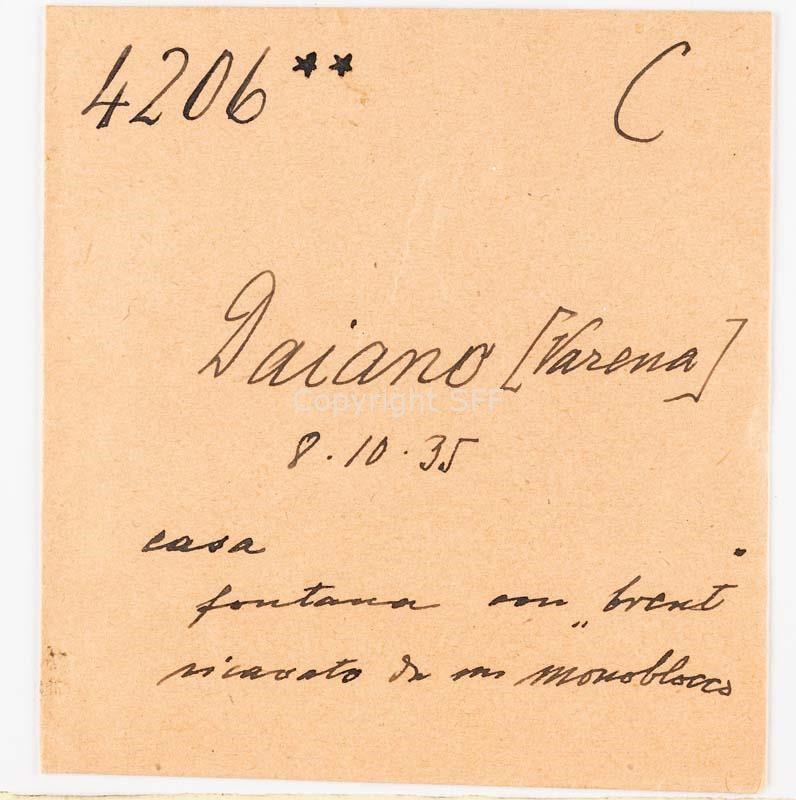 4206** C
Daiano [Varena]
Copyright SFF
8.10.35
casa
fontana con „brent"
ricavato da un monoblocco